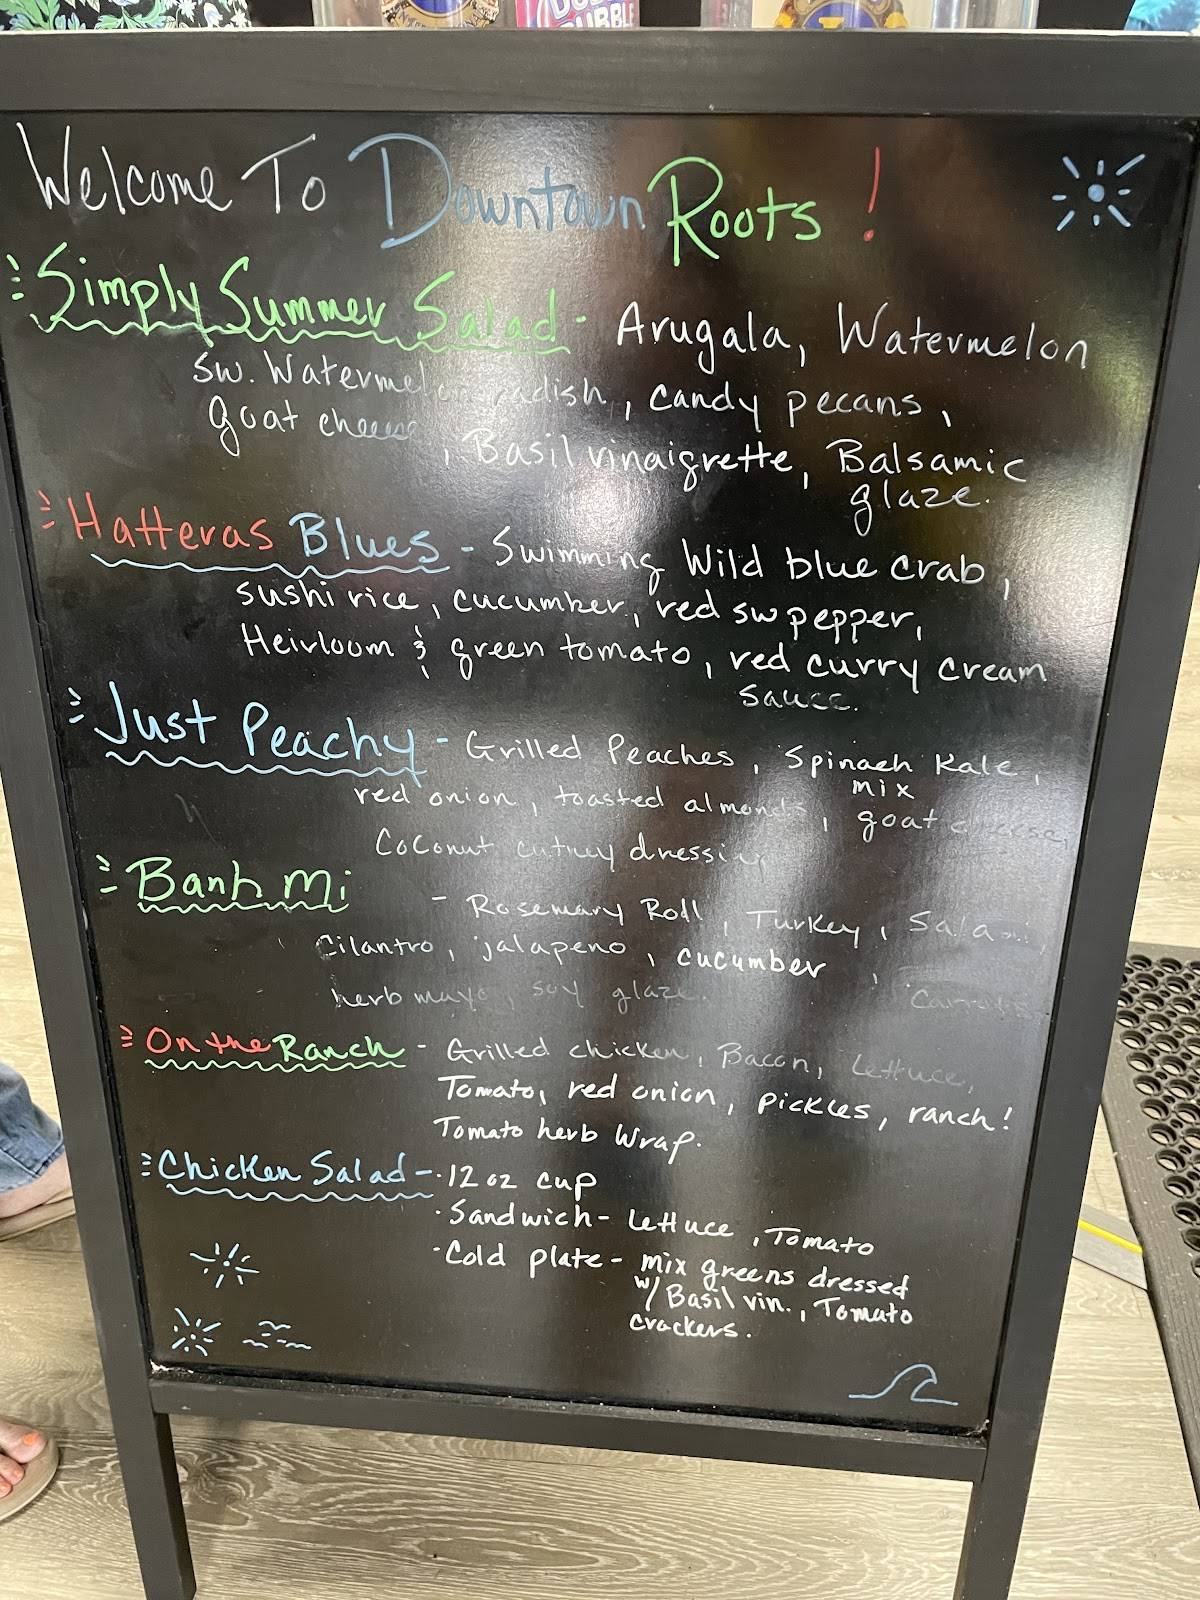 DUBBLE BUBBLE
Welcome To Downtown Roots!
Simply Summer Salad - Arugala, Watermelon
sw. Watermelon radish, candy pecans,
goat cheese, Basil vinaigrette, Balsamic
glaze.
Hatteras Blues - Swimming Wild blue crab,
sushi rice, cucumber, red sw pepper,
Heirloom & green tomato, red curry cream
sauce.
Just Peachy - Grilled Peaches, Spinach Kale,
mix
red onion, toasted almonds, goat cheese,
Coconut cutney dressing
Banh Mi - Rosemary Roll, Turkey, Salami,
Cilantro, jalapeno, cucumber,
herb mayo, soy glaze. Carrots
On the Ranch - Grilled chicken, Bacon, Lettuce,
Tomato, red onion, pickles, ranch!
Tomato herb Wrap.
Chicken Salad - · 12 oz cup
· Sandwich - Lettuce, Tomato
· Cold plate - mix greens dressed
w/ Basil vin., Tomato
crackers.